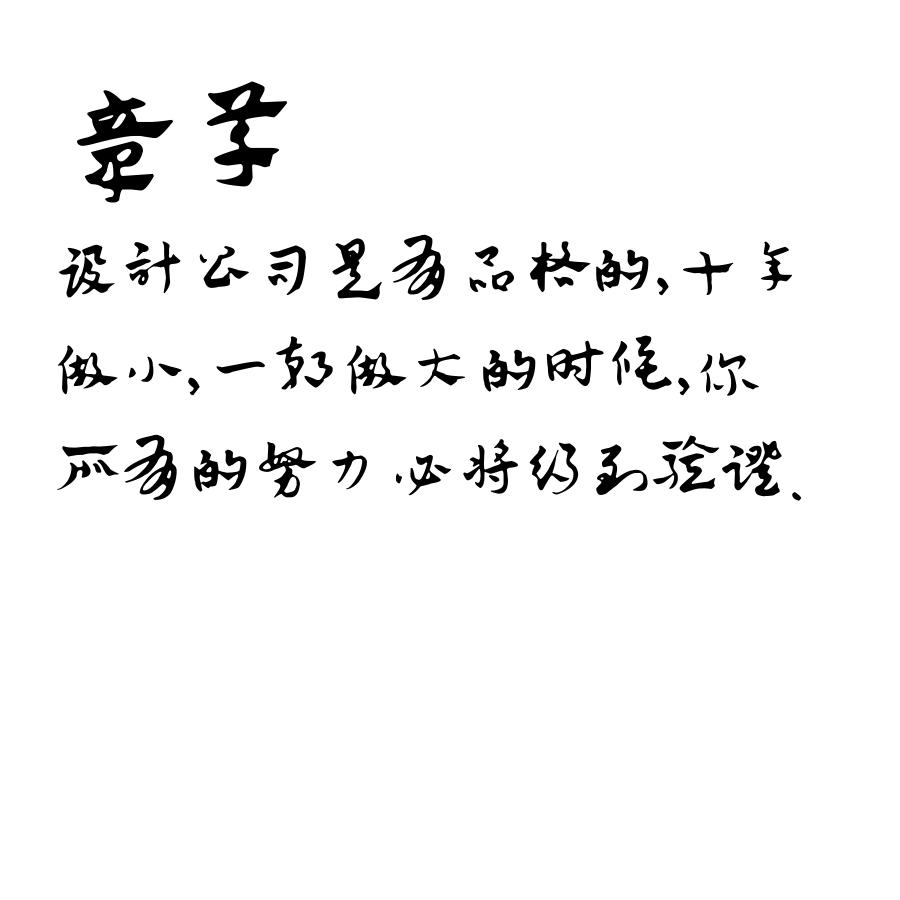 章子
设計公司是有品格的,十年
做小,一朝做大的时候,你
所有的努力必将得到验證.